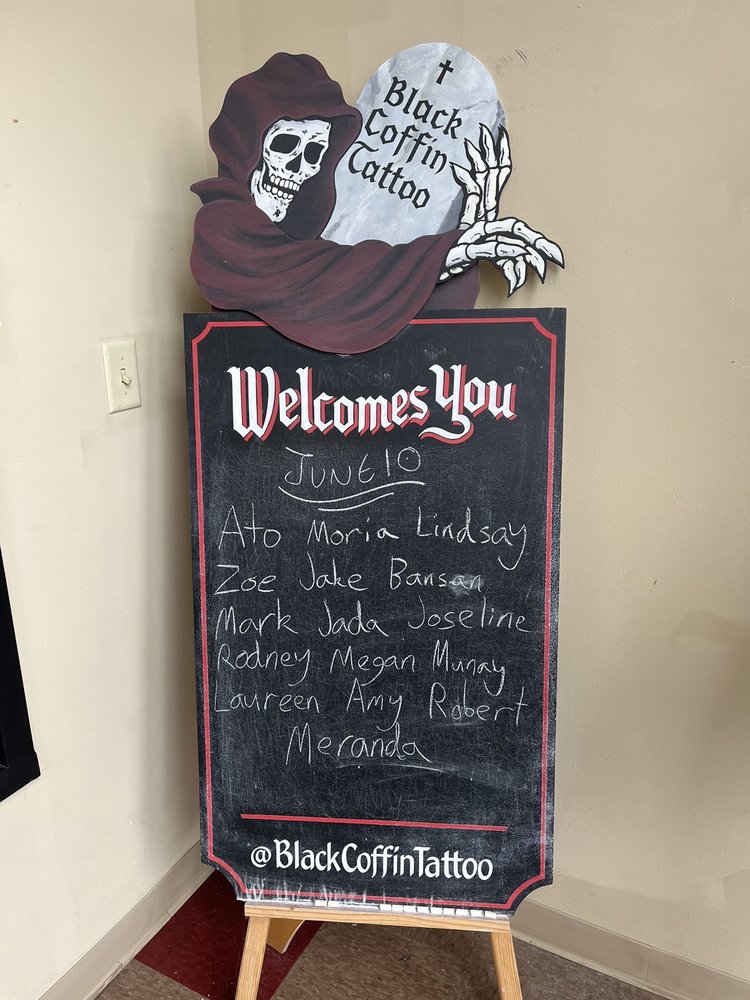 Black
Coffin
Tattoo
Welcomes You
JUNE 10
Ato Moria Lindsay
Zoe Jake Bansan
Mark Jada Joseline
Rodney Megan Munay
Laureen Amy Robert
Meranda
@BlackCoffinTattoo